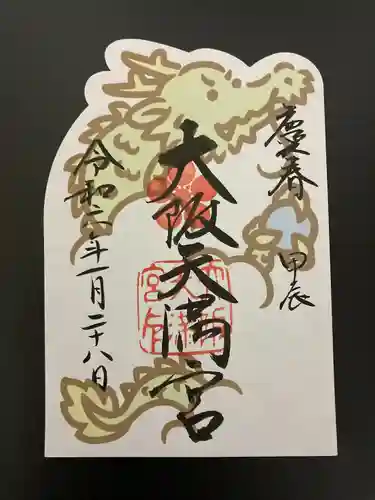 慶春
甲辰
大阪天満宮
令和六年一月二十八日